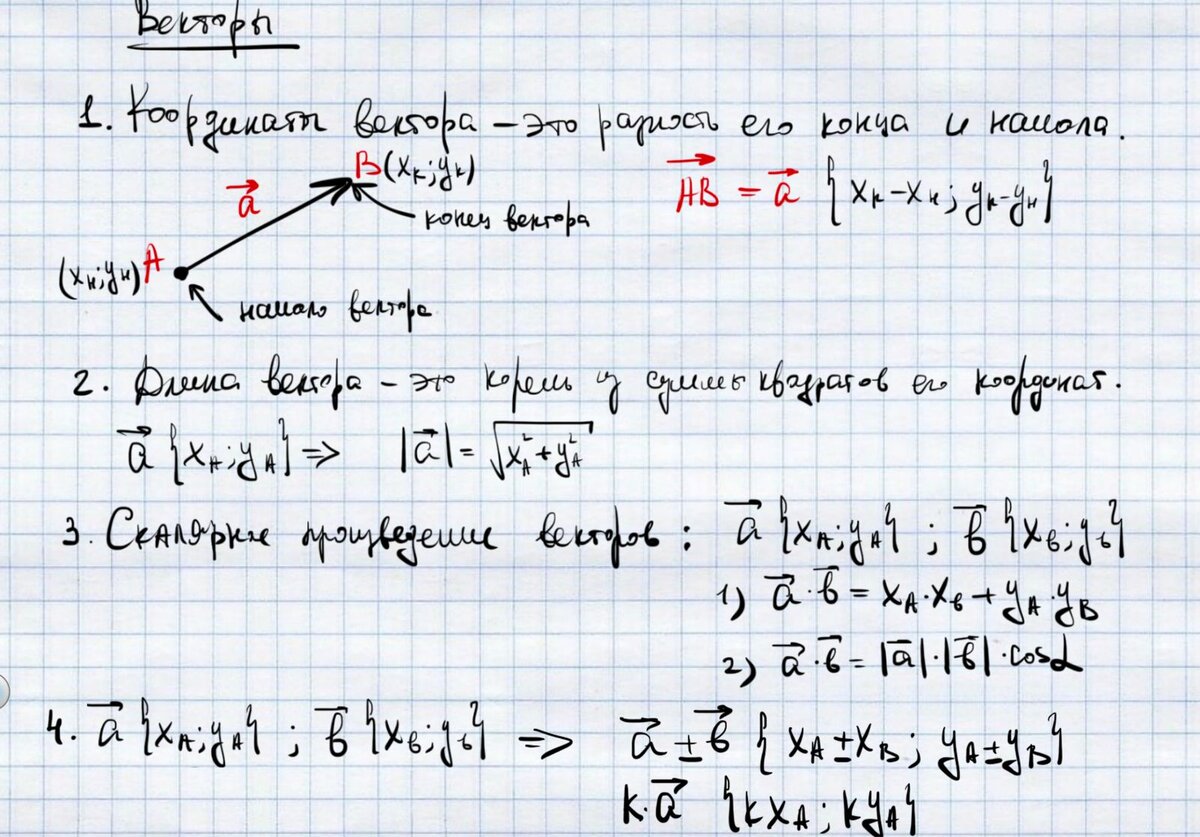 Векторы
1. Координаты вектора – это разность его конца и начала.
B(xк;yк)
a⃗
AB⃗ = a⃗ {xк–xн; yк–yн}
конец вектора
(xн;yн) A
начало вектора
2. Длина вектора – это корень из суммы квадратов его координат.
a⃗ {xA;yA} => |a⃗| = √(xA² + yA²)
3. Скалярное произведение векторов: a⃗ {xA;yA} ; в⃗ {xв;yв}
1) a⃗·в⃗ = xA·xв + yA·yB
2) a⃗·в⃗ = |a⃗|·|в⃗|·cosα
4. a⃗ {xA;yA} ; в⃗ {xв;yв} => a⃗±в⃗ {xA±xB; yA±yB}
k·a⃗ {kxA; kyA}